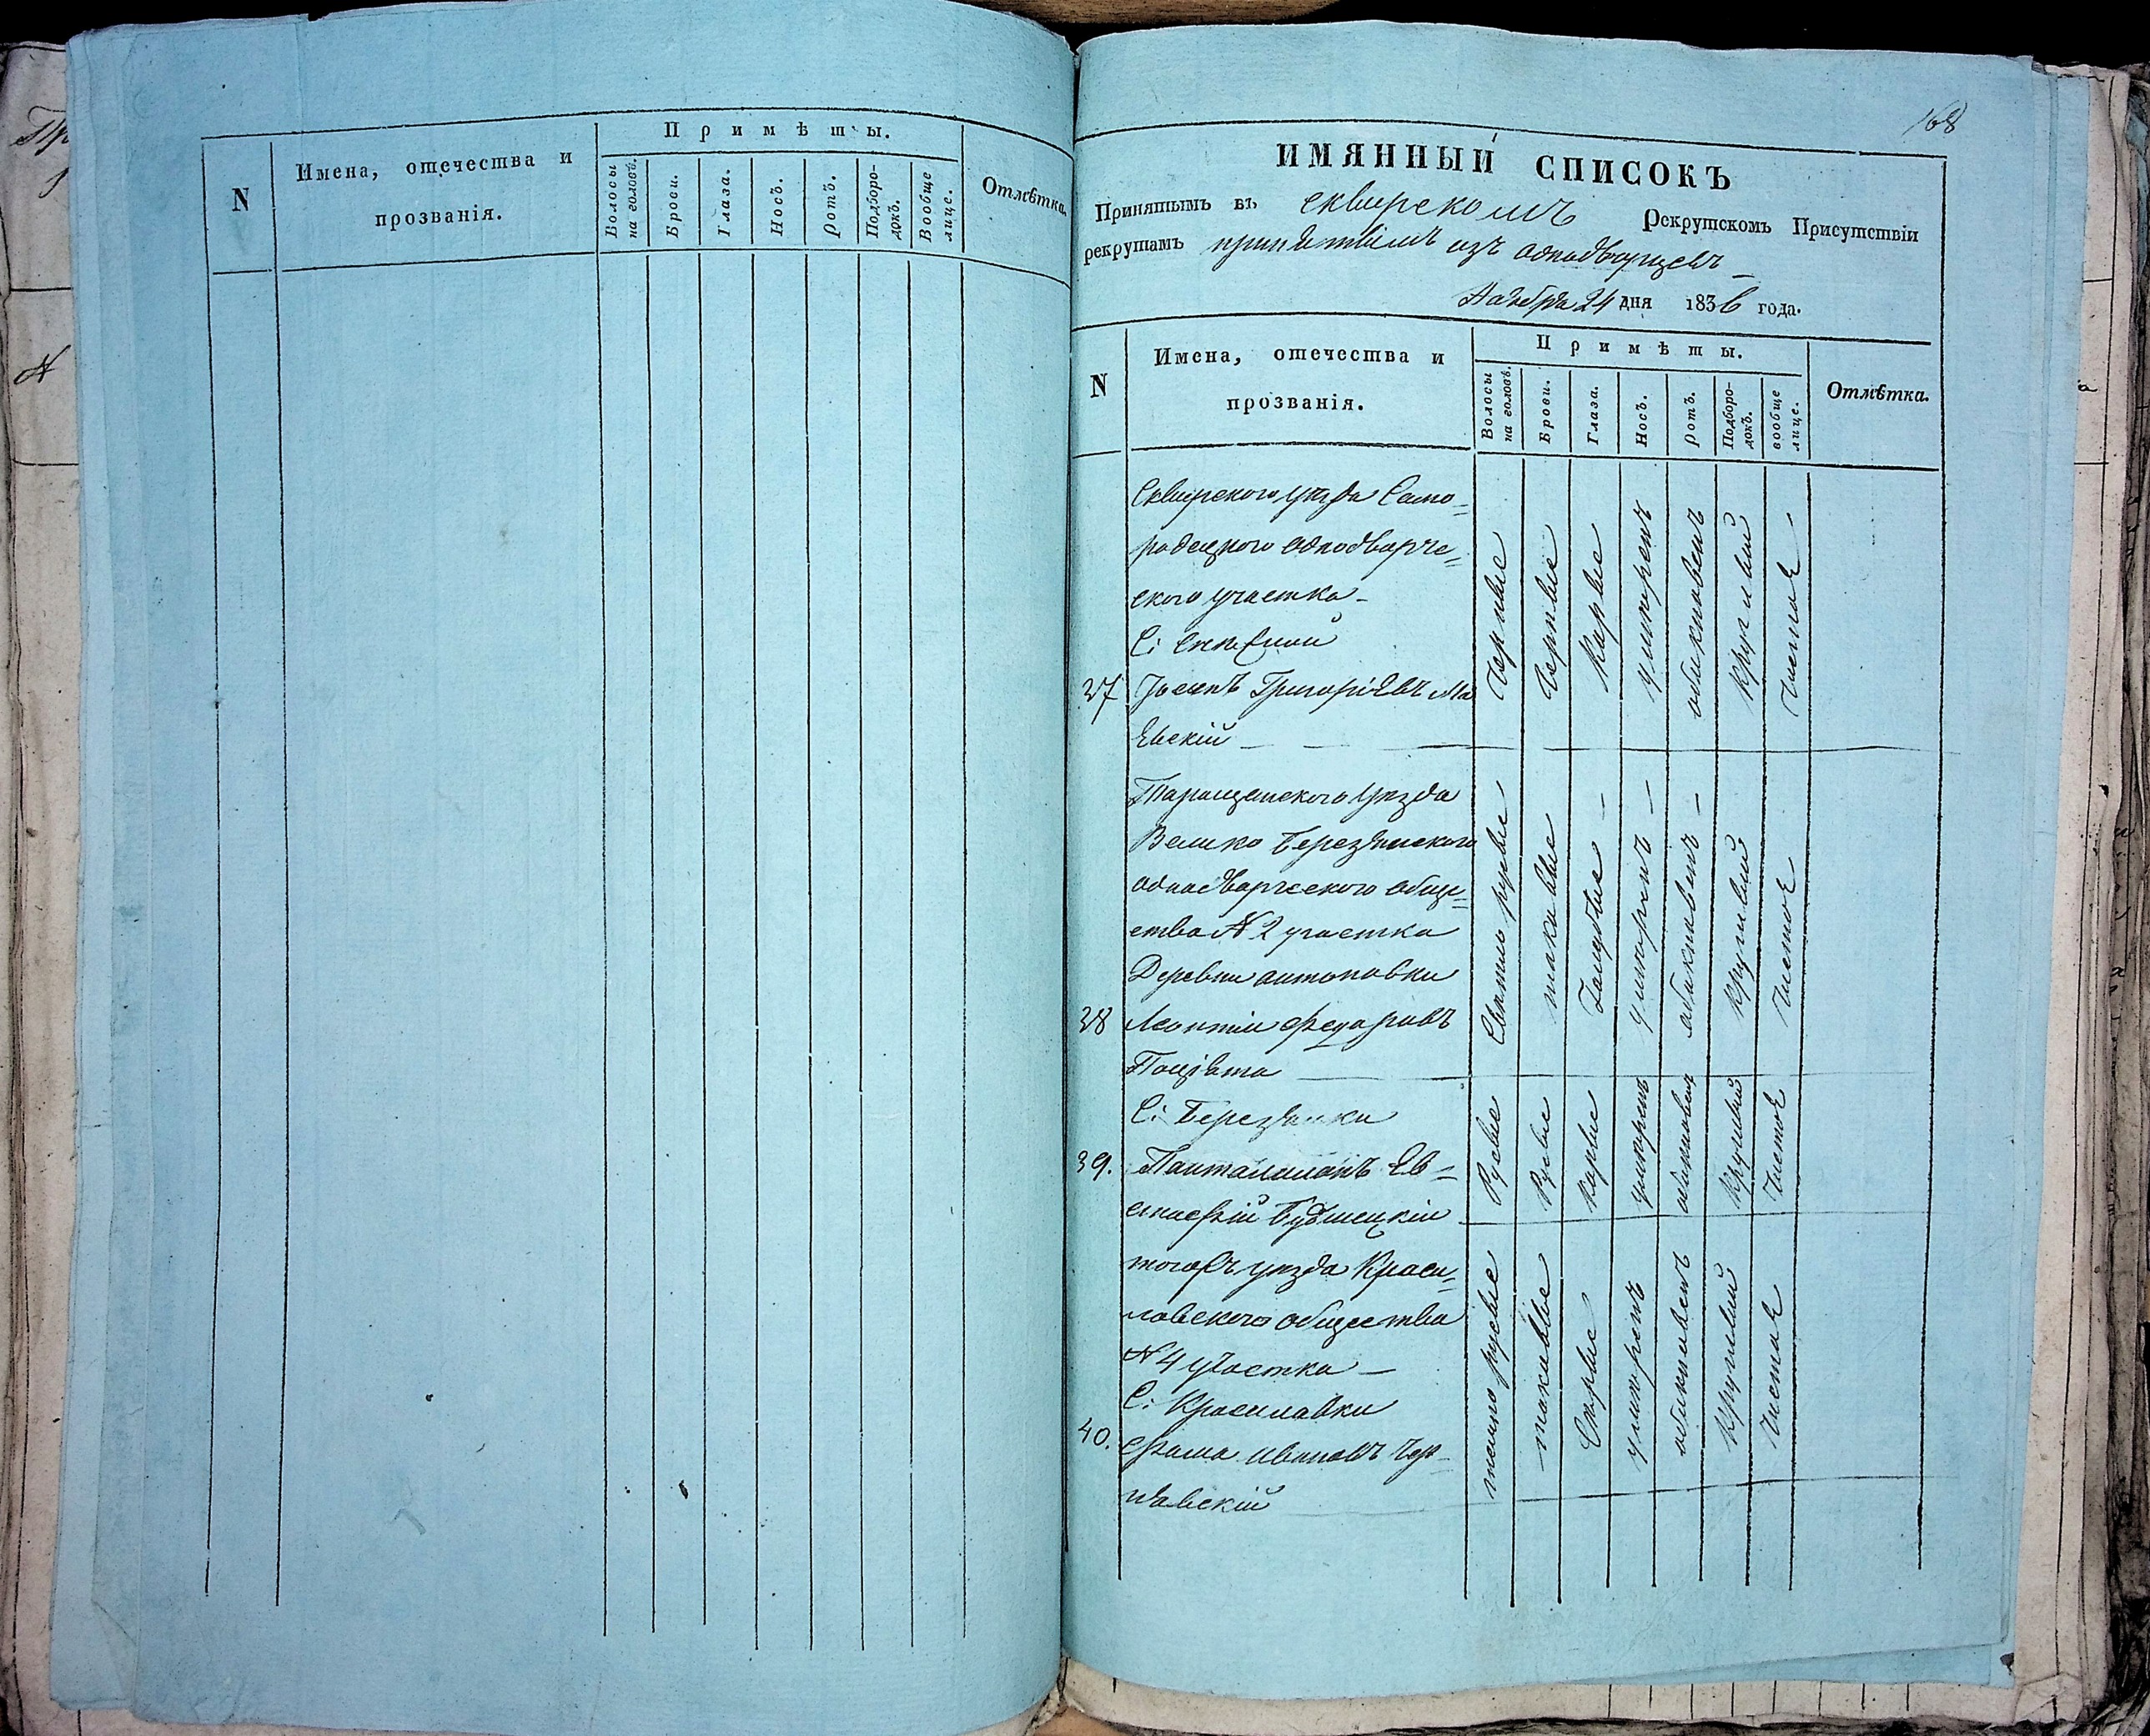 N
Имена, отечества и
прозванія.
Примѣты.
Волосы на головѣ.
Брови.
Глаза.
Носъ.
Ротъ.
Подборо-
докъ.
Вообще лице.
Отмѣтка.
168
ИМЯННЫЙ СПИСОКЪ
Принятымъ въ сквирскомъ Рекрутскомъ Присутствіи
рекрутамъ принятымъ изъ однодворцевъ
Ноября 24 дня 1836 года.
N
Имена, отечества и
прозванія.
Примѣты.
Волосы на головѣ.
Брови.
Глаза.
Носъ.
Ротъ.
Подборо-
докъ.
вообще лице.
Отмѣтка.
Сквирского уѣзда Само-
родецкого однодворче-
ского участка
С:
37 Іосипъ Григоріевъ Ма
евскій
Черные Черные Карые умѣренъ обыкновенъ Круглый Чистое
Таращанского Уѣзда
Велико Березянского
однодворческого обще-
ства N 2 участка
Деревни антоновки
38 Леонтій Федоровъ
Свѣтло русые таковые Голубые умѣренъ обыкновенъ Круглый Чистое
С: Березянки
39. Панталимонъ Ев-
Русые Русые карые умѣренъ обыкновенъ Круглый Чистое
тогожъ уѣзда Краси-
ловского общества
N 4 участка
С: Красиловки
40. Фома Ивановъ Чер-
темно русые таковые Сѣрые умѣренъ обыкновенъ Круглый Чистое